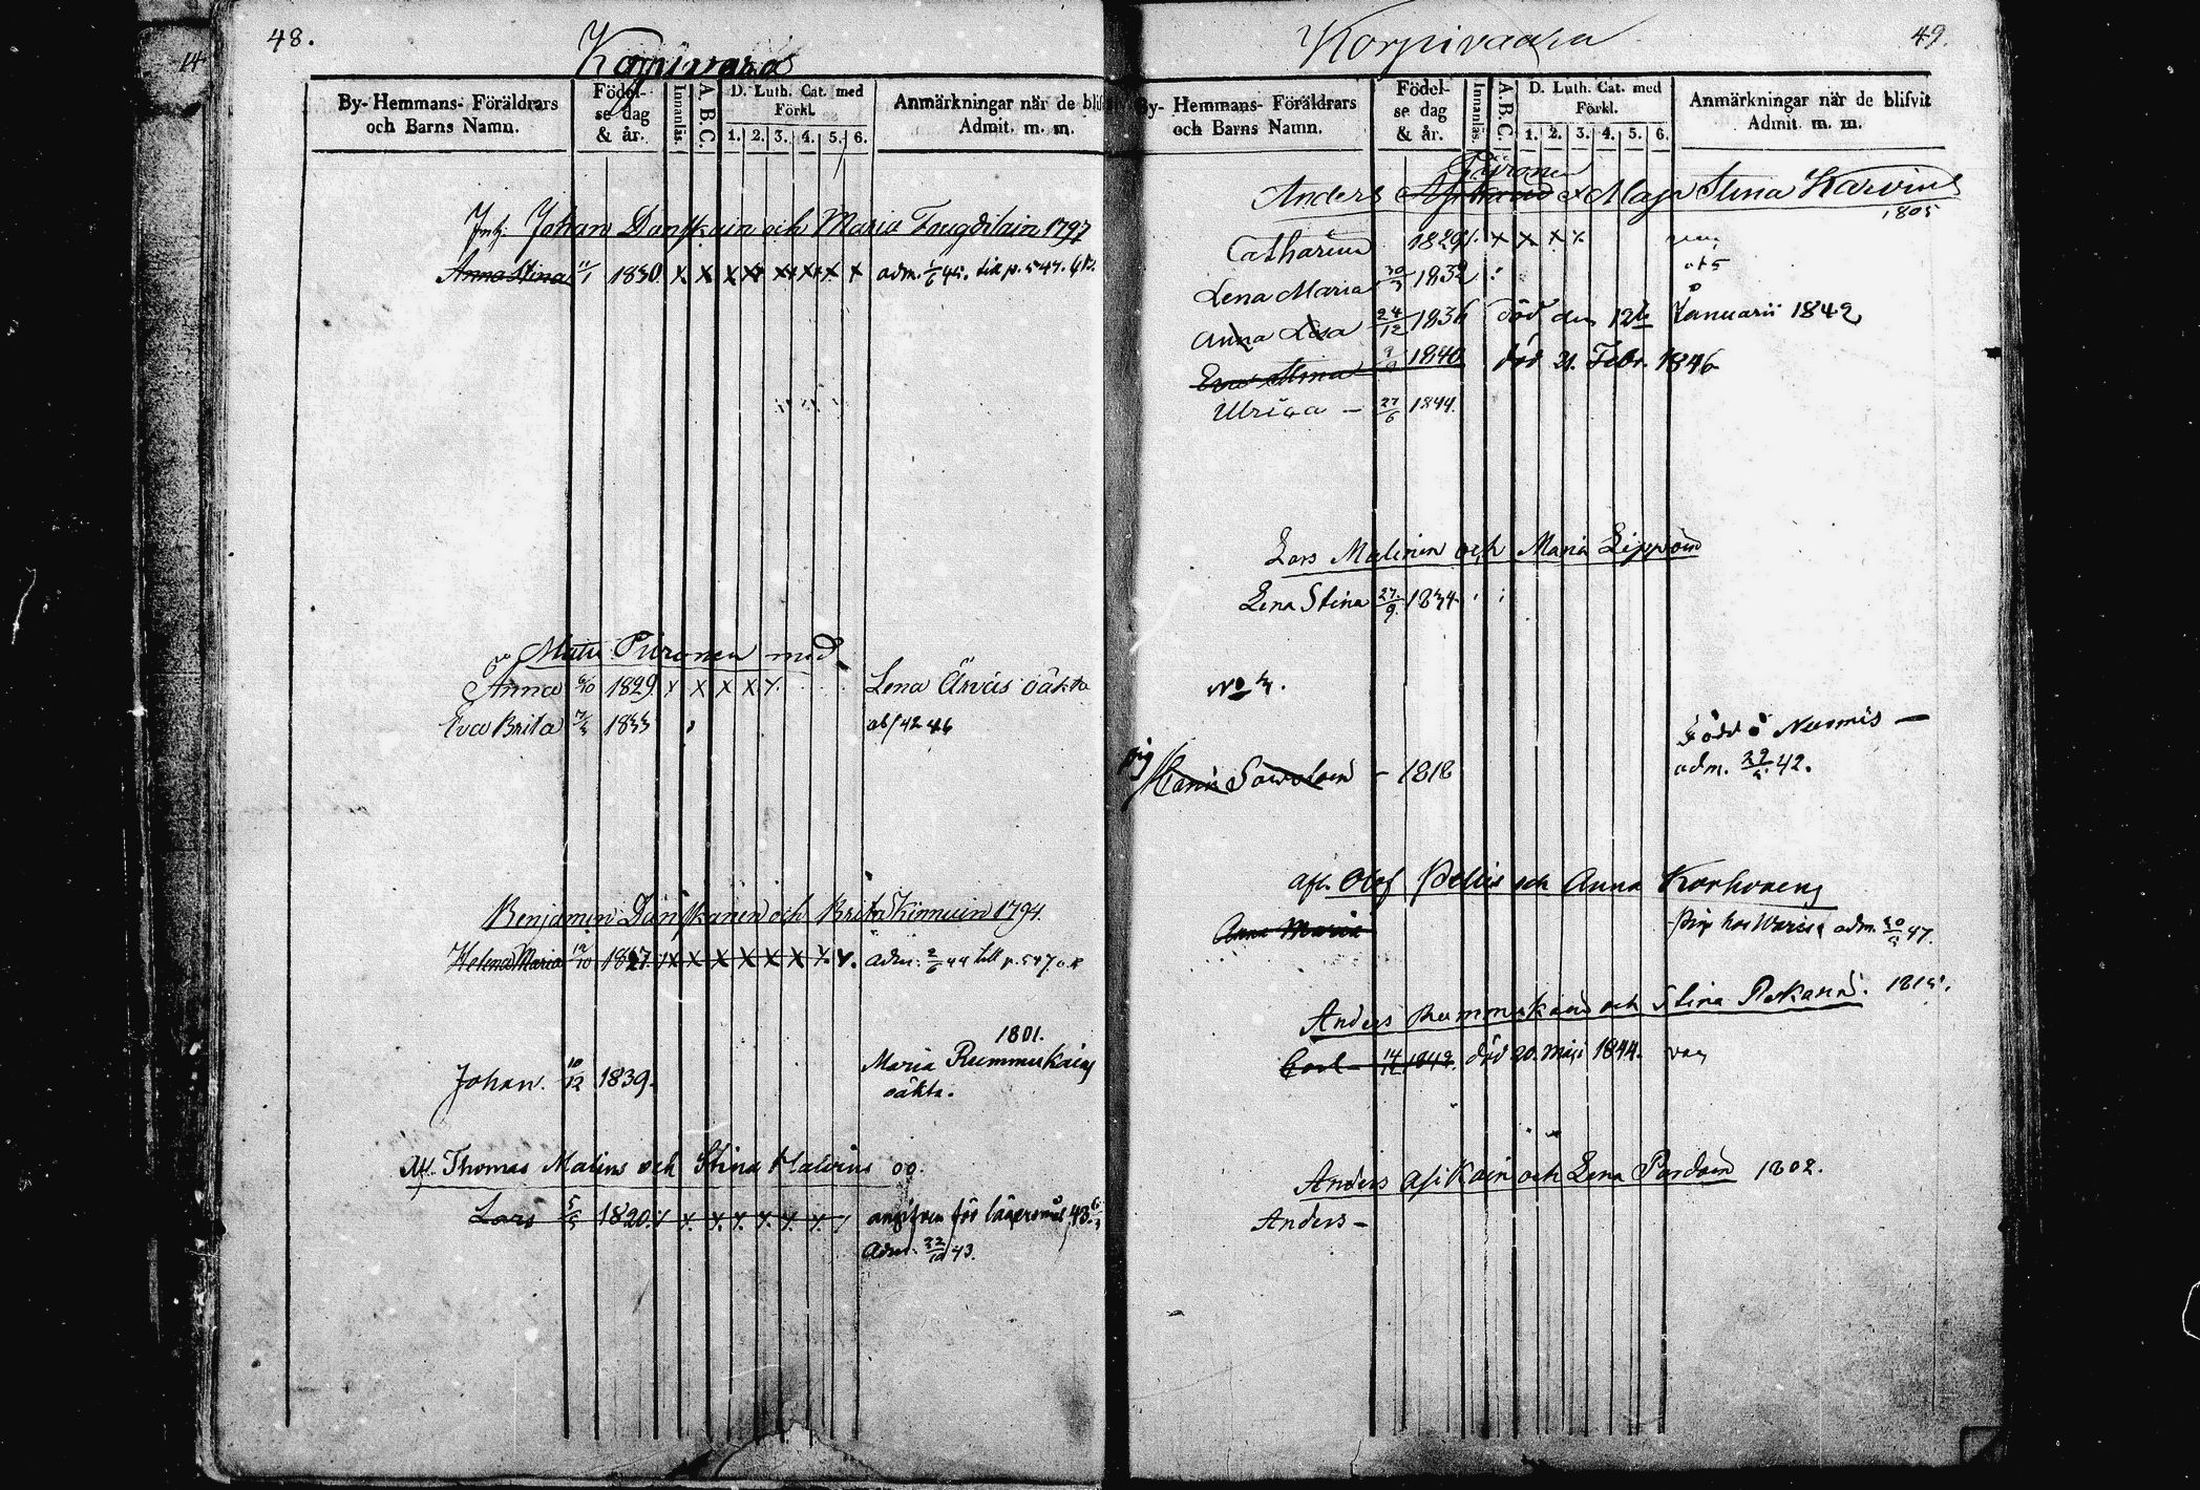 48.
14
Korpivaara
By- Hemmans- Föräldrars
och Barns Namn.
Födel-
se dag
& år.
Innanläs.
A. B. C.
D. Luth. Cat. med
Förkl.
1. 2. 3. 4. 5. 6.
Anmärkningar när de blifvit
Admit. m. m.
Johan Danskain och Maria 1797
Anna Stina 11/1 1830 x x x x x x x x adm. 45. till p. 547.
Matts Piironen med
Anna 6/10 1829 x x x x x Lena oäkta
Eva Brita 1833 abs 42 46
Benjamin Danskanen och Brita Kinnuin 1794.
Helena Maria 12/10 1827. x x x x x x x x. adm: 2/6 44 till p. 547
1801.
Maria Rummukain
Johan. 10/12 1839.
oäkta.
Af. Thomas Malins och Stina Malvius
Lars 5/5 1820. x x. x. x. x. x. x. angifven för lägersmål 43.
adm. 22/10 43.
Korpivaara
49.
By- Hemmans- Föräldrars
och Barns Namn.
Födel-
se dag
& år.
Innanläs.
A. B. C.
D. Luth. Cat. med
Förkl.
1. 2. 3. 4. 5. 6.
Anmärkningar när de blifvit
Admit. m. m.
Piironen
Anders & Maja Stina Karvins
1805
Catharina 1829 x x x x
Lena Maria 1832
Anna Lisa 24/12 1836 död den 12te Januarii 1842
Eva Stina 1840 död 21. Febr. 1846
Ulrica - 27/6 1844.
Lars Malinin och Maria Lipponen
Lena Stina 27/9. 1834.
No 4.
Född i Nurmis -
pig Savolain - 1818 adm. 42.
afl. Olof Pellis och Anna Korhonens
Anna Maria pig hos adm. 47.
Anders Rummukain och Stina 1815.
Carl - 14/12 1842. död 20. Maji 1844.
Anders Asikain och Lena Pardain 1802.
Anders -